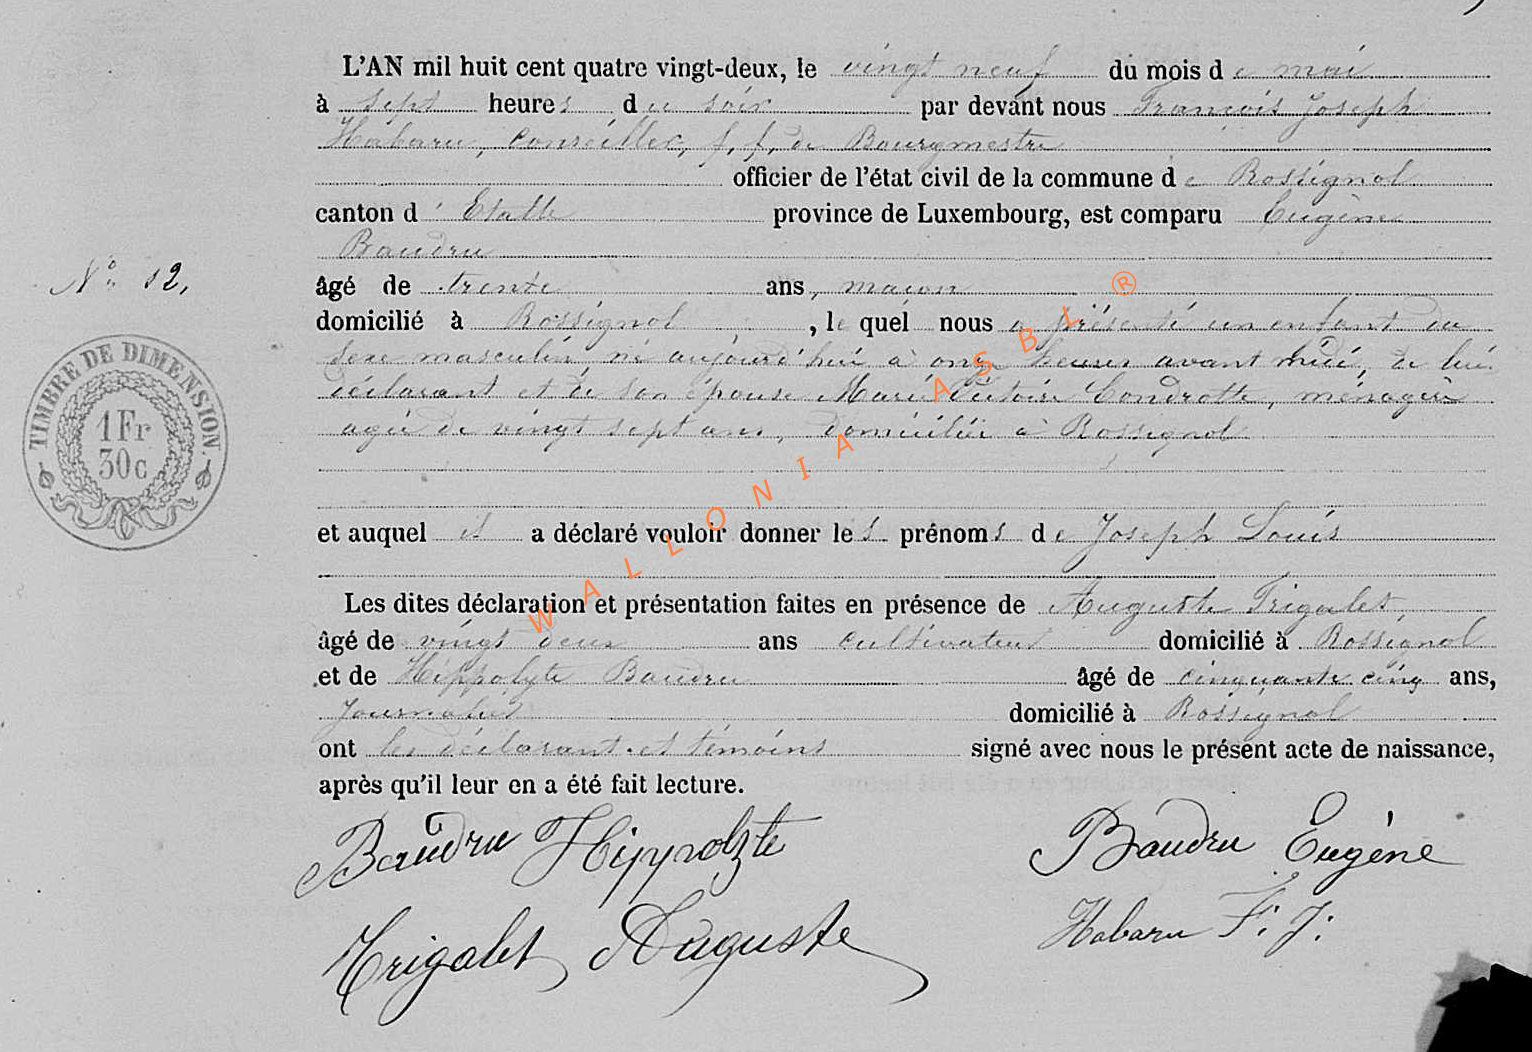 L'AN mil huit cent quatre vingt-deux, le vingt neuf du mois de mai
à sept heures du soir par devant nous François Joseph
Habaru, Conseiller, f. f. de Bourgmestre
officier de l'état civil de la commune de Rossignol
canton d'Etalle province de Luxembourg, est comparu Eugène
Baudru
N° 12,
âgé de trente ans, maçon
domicilié à Rossignol, le quel nous a présenté un enfant du
sexe masculin né aujourd'hui à onze heures avant midi, de lui
déclarant et de son épouse Marie Victoire Condrotte, ménagère
agée de vingt sept ans, domiciliée à Rossignol
TIMBRE DE DIMENSION.
1 Fr
30 c
et auquel il a déclaré vouloir donner les prénoms de Joseph Louis
Les dites déclaration et présentation faites en présence de Auguste Trigalet
âgé de vingt deux ans cultivateur domicilié à Rossignol
et de Hippolyte Baudru âgé de cinquante cinq ans,
Journalier domicilié à Rossignol
ont les déclarant et témoins signé avec nous le présent acte de naissance,
après qu'il leur en a été fait lecture.
Baudru Hippolyte Baudru Eugène
Trigalet Auguste Habaru F. J.
WALLONIA ASBL ®